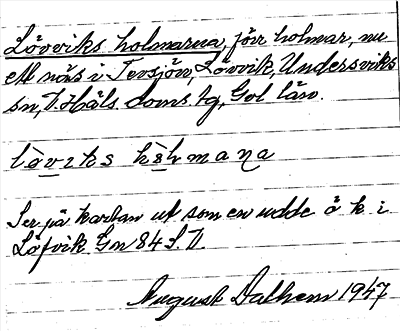 Lövviks holmarna, förr holmar, nu
ett näs i Tevsjön, Lövvik, Undersviks
sn, V. Häls. Doms. tg, Gvl län.
lòviks hòlmana
Ser på kartan ut som en udde å k i
Löfvik Gn 84 S. V.
August Dalhem 1947